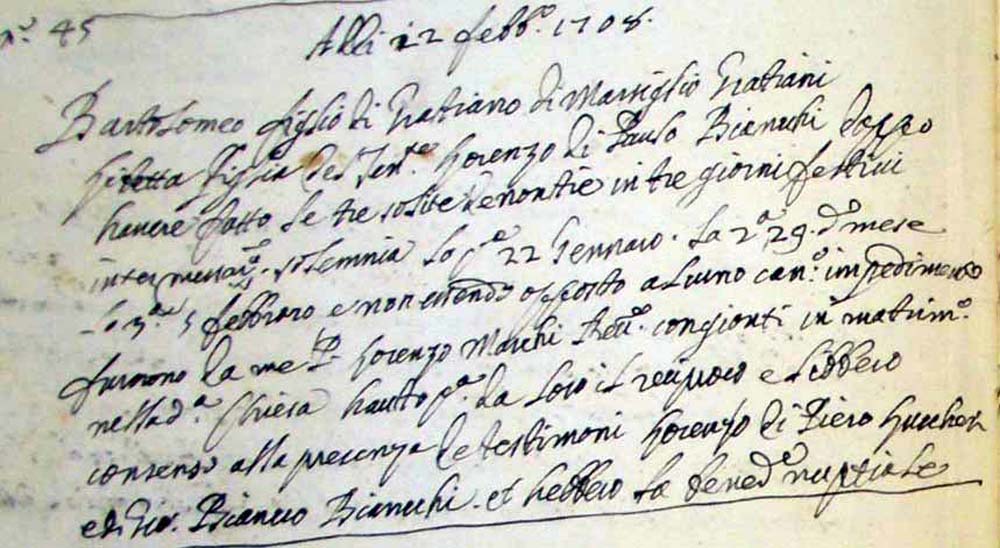 N.º 45
Alli 12 febb.º 1708.
Bartolomeo figlio di Gratiano di Marsiglio Gratiani
figlia del Ten.te Lorenzo di Paulo Bianchi doppo
havere fatto le tre solite denontie in tre giorni festivi
inter solemnia la p.a 22 Gennaro. La 2.a 29. d.º mese
La 3.a 5 febbraro e non essendo opposto alcuno can.º impedimento
furnono da me P. Lorenzo Marchi Rett.º congionti in matrim.º
nella d.a Chiesa hauto p.a da loro il reciproco e libbero
consenso alla presenza de testimoni Lorenzo di Piero
et di Gio. Bianchi. et hebbero la bened.e nuptiale